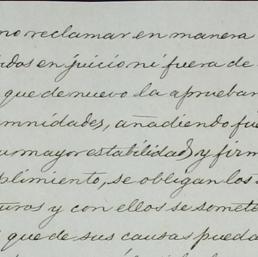 no reclamar en manera
idos en juicio ni fuera de
que de nuevo la aprueban
emnidades, añadiendo fue
su mayor estabilidad y firm
plimiento, se obligan los
turos y con ellos se somete
que de sus causas pueda